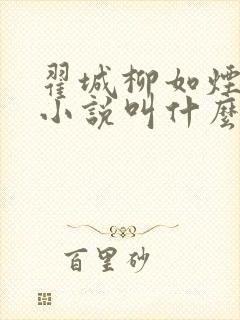 翟城柳如煙
小說叫什麼
百里砂